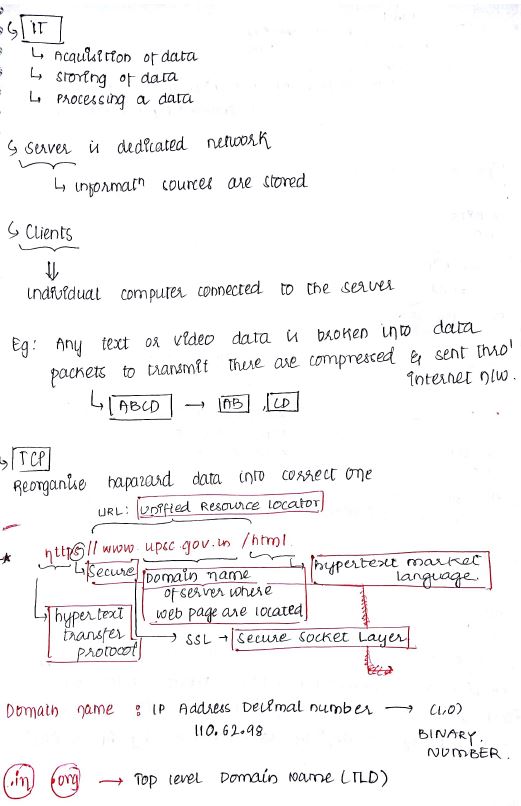 IT
Acquisition of data
storing of data
Processing a data
Server is dedicated network
informatn sources are stored
Clients
individual computer connected to the server
Eg: Any text or video data is broken into data
packets to transmit there are compressed & sent thro'
internet n/w.
ABCD → AB , CD
TCP
Reorganise hapazard data into correct one
URL: Unified Resource Locator
https// www. upsc.gov.in /html
Secure
Domain name
of server where
web page are located
hypertext market
language.
hypertext
transfer
protocol
SSL → Secure Socket Layer
Domain name : IP Address Decimal number → (1,0)
110.62.98
BINARY.
NUMBER.
.in .org → Top level Domain Name (TLD)